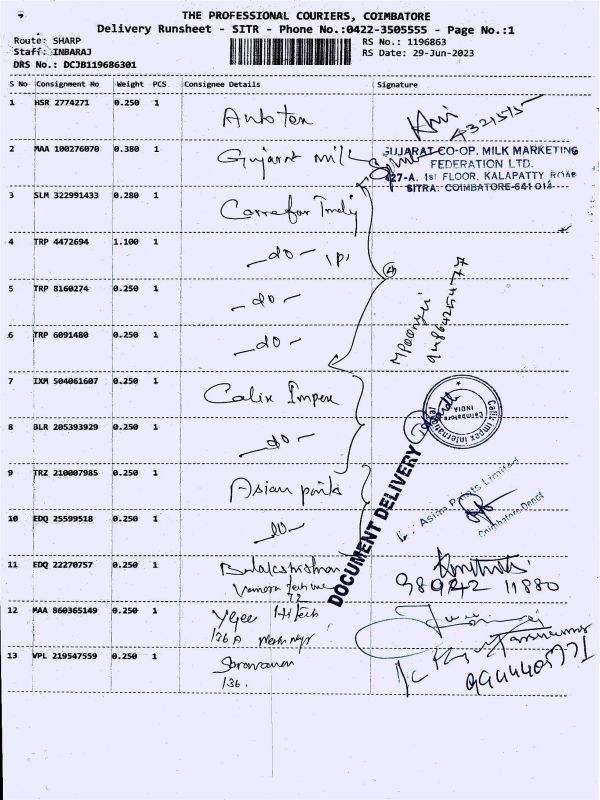 THE PROFESSIONAL COURIERS, COIMBATORE
Delivery Runsheet - SITR - Phone No.:0422-3505555 - Page No.:1
Route: SHARP
Staff: INBARAJ
DRS No.: DCJB119686301
RS No.: 1196863
RS Date: 29-Jun-2023
S No Consignment No Weight PCS Consignee Details Signature
1 HSR 2774271 0.250 1
2 MAA 100276070 0.380 1 Gujarat milk
GUJARAT CO-OP. MILK MARKETING
FEDERATION LTD.
427-A, 1st FLOOR, KALAPATTY ROAD
SITRA, COIMBATORE-641 014
3 SLM 322991433 0.280 1
4 TRP 4472694 1.100 1 -do-
5 TRP 8160274 0.250 1 -do-
6 TRP 6091480 0.250 1 -do-
4
7 IXM 504061607 0.250 1 Calix Impex
Calix Impex International
Coimbatore
INDIA
8 BLR 205393929 0.250 1 -do-
DOCUMENT DELIVERY
9 TRZ 210007985 0.250 1 Asian paints
Asian Paints Limited
Coimbatore Depot
10 EDQ 25599518 0.250 1 -do-
11 EDQ 22270757 0.250 1 Balakrishnan
98942 11880
12 MAA 860365149 0.250 1 Hitech
136 A
13 VPL 219547559 0.250 1 Saravanan
136.